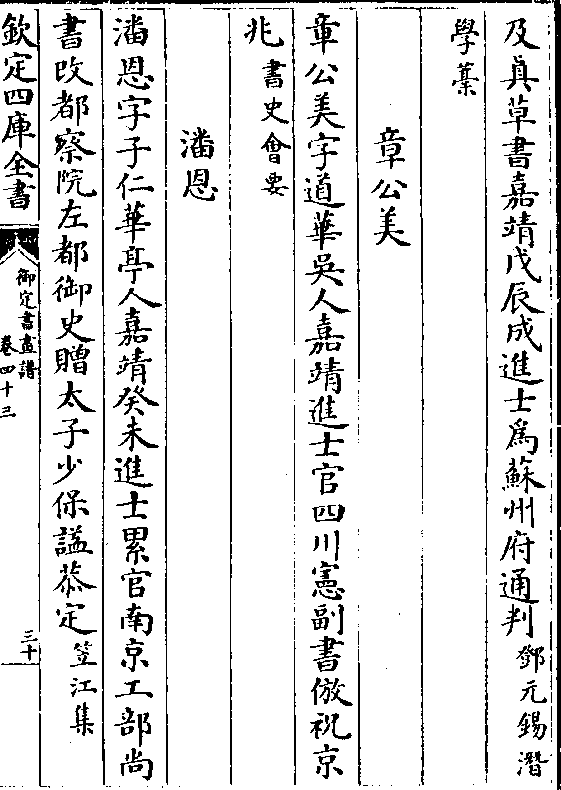 及真草書嘉靖戊辰成進士為蘇州府通判鄧元錫濳
學藁
章公美
章公美字道華吳人嘉靖進士官四川憲副書倣祝京
兆書史會要
潘恩
潘恩字子仁華亭人嘉靖癸未進士累官南京工部尚
書改都察院左都御史贈太子少保諡恭定笠江集
欽定四庫全書
御定書畫譜
卷四十三
三十